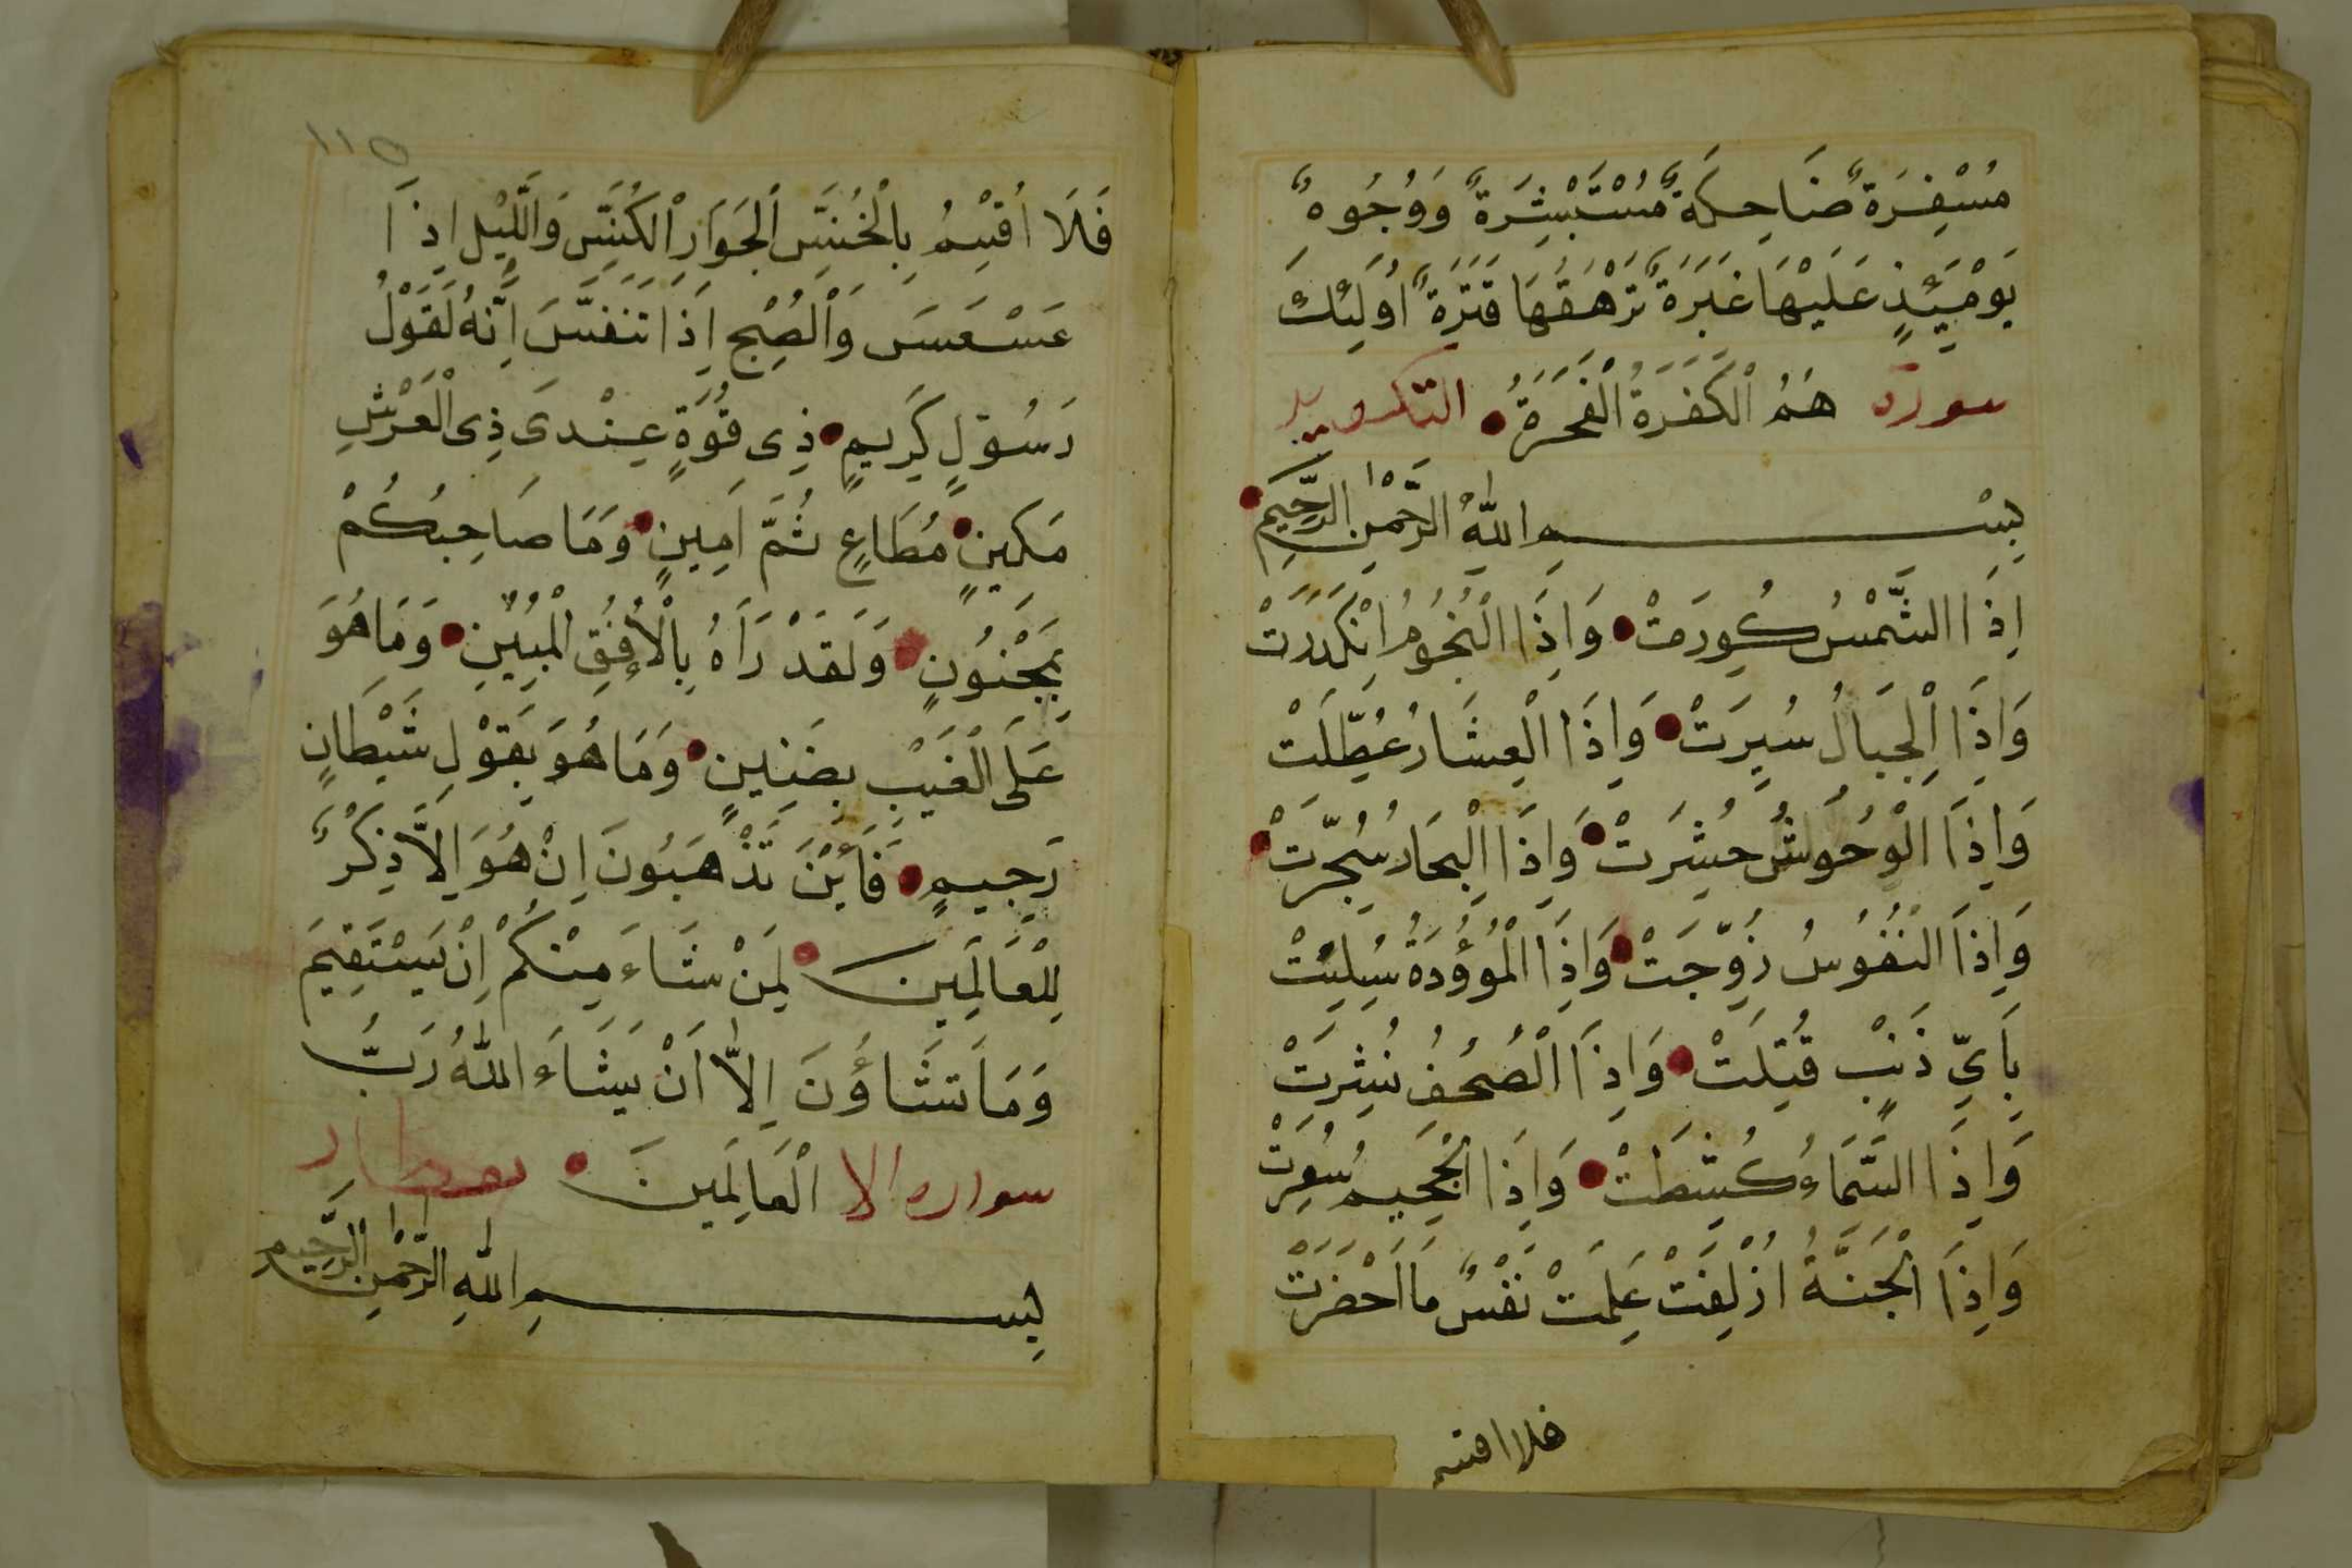 مُسْفِرَةٌ ضَاحِكَةٌ مُسْتَبْشِرَةٌ وَوُجُوهٌ
يَوْمَئِذٍ عَلَيْهَا غَبَرَةٌ تَرْهَقُهَا قَتَرَةٌ اُولَئِكَ
سورة هُمُ الْكَفَرَةُ الْفَجَرَةُ التكوير
بِسْمِ اللّٰهِ الرَّحْمٰنِ الرَّحِيمِ
اِذَا الشَّمْسُ كُوِرَتْ وَاِذَا النُّجُومُ انْكَدَرَتْ
وَاِذَا الْجِبَالُ سُيِرَتْ وَاِذَا الْعِشَارُ عُطِّلَتْ
وَاِذَا الْوُحُوشُ حُشِرَتْ وَاِذَا الْبِحَارُ سُجِّرَتْ
وَاِذَا النُّفُوسُ زُوِّجَتْ وَاِذَا الْمُؤُدَةُ سُئِلَتْ
بِاَيِّ ذَنْبٍ قُتِلَتْ وَاِذَا الْصُحُفُ نُشِرَتْ
وَاِذَا السَّمَاءُ كُشِطَتْ وَاِذَا الْجَحِيمُ سُعِرَتْ
وَاِذَا الْجَنَّةُ اُزْلِفَتْ عَلِمَتْ نَفْسٌ مَا اَحْضَرَتْ
فلا اقسم
١١٥
فَلَا اُقْسِمُ بِالْخُنَّسِ الْجَوَارِ الْكُنَّسِ وَالَّيْلِ اِذَا
عَسْعَسَ وَالْصُبْحِ اِذَا تَنَفَّسَ اِنَّهُ لَقَوْلُ
رَسُولٍ كَرِيمٍ ذِى قُوَّةٍ عِنْدَى ذِى الْعَرْشِ
مَكِينٍ مُطَاعٍ ثَمَّ اَمِينٍ وَمَا صَاحِبُكُمْ
بِمَجْنُونٍ وَلَقَدْ رَاَهُ بِالْأُفُقِ الْمُبِينِ وَمَا هُوَ
عَلَى الْغَيْبِ بِضَنِينٍ وَمَا هُوَ بِقَوْلِ شَيْطَانٍ
رَجِيمٍ فَاَيْنَ تَذْهَبُونَ اِنْ هُوَ اِلَّا ذِكْرٌ
لِلْعَالَمِينَ لِمَنْ شَاءَ مِنْكُمْ اِنْ يَسْتَقِيمَ
وَمَا تَشَاؤُنَ اِلَّا اَنْ يَشَاءَ اللّٰهُ رَبُّ
سواره الا الْعَالَمِينَ نفطار
بِسْمِ اللّٰهِ الرَّحْمٰنِ الرَّحِيمِ